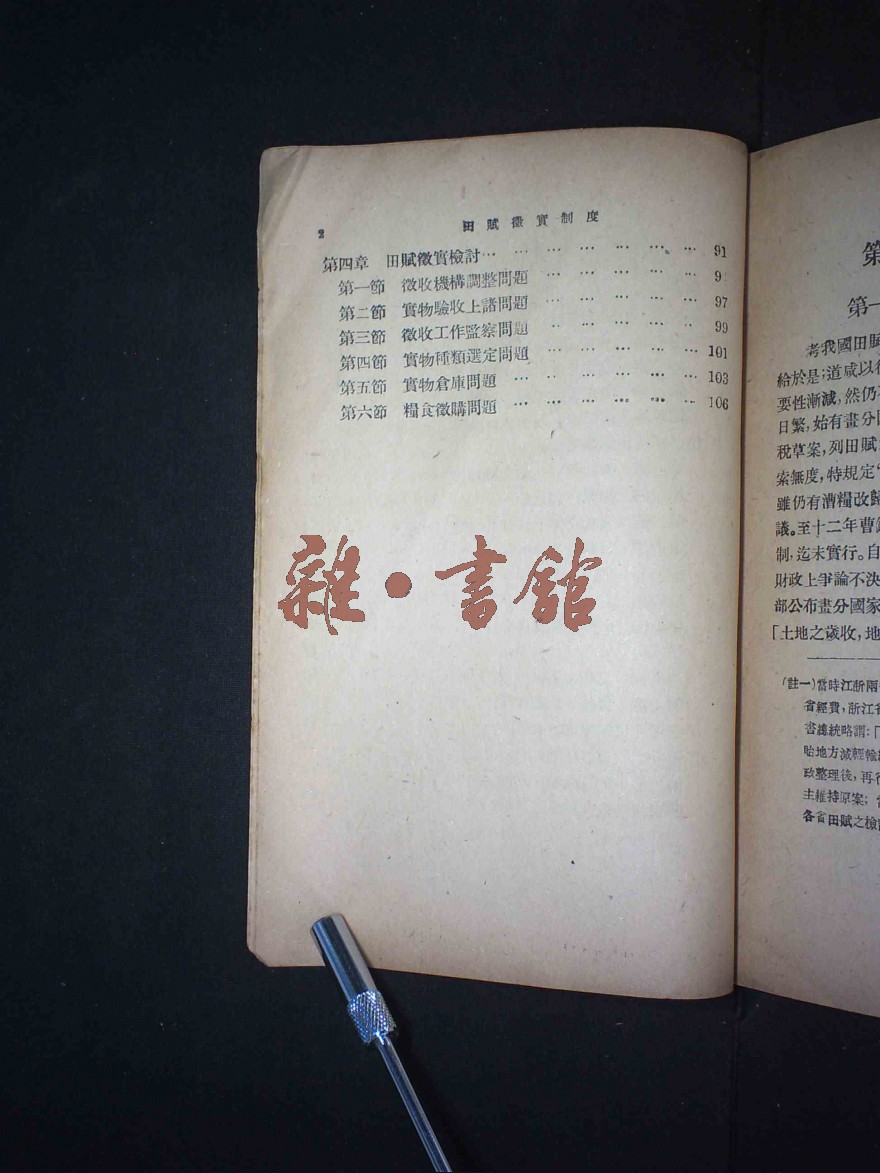 2
田賦徵實制度
第四章 田賦徵實檢討… … … … … … … 91
第一節 徵收機構調整問題 … … … … … 9
第二節 實物驗收上諸問題 … … … … … 97
第三節 徵收工作監察問題 … … … … … 99
第四節 實物種類選定問題 … … … … … 101
第五節 實物倉庫問題 … … … … … … 103
第六節 糧食徵購問題 … … … … … … 106
雜·書館
第
第一
考我國田賦
給於是；道咸以
要性漸減，然仍
日繁，始有畫分
稅草案，列田賦
索無度，特規定
雖仍有漕糧改歸
議。至十二年曹
制，迄未實行。自
財政上爭論不決
部公布畫分國家
「土地之歲收，地
（註一）當時江浙兩
省經費，浙江省
書總統略謂：「
貽地方減輕輸
政整理後，再
主維持原案；
各省田賦之檢